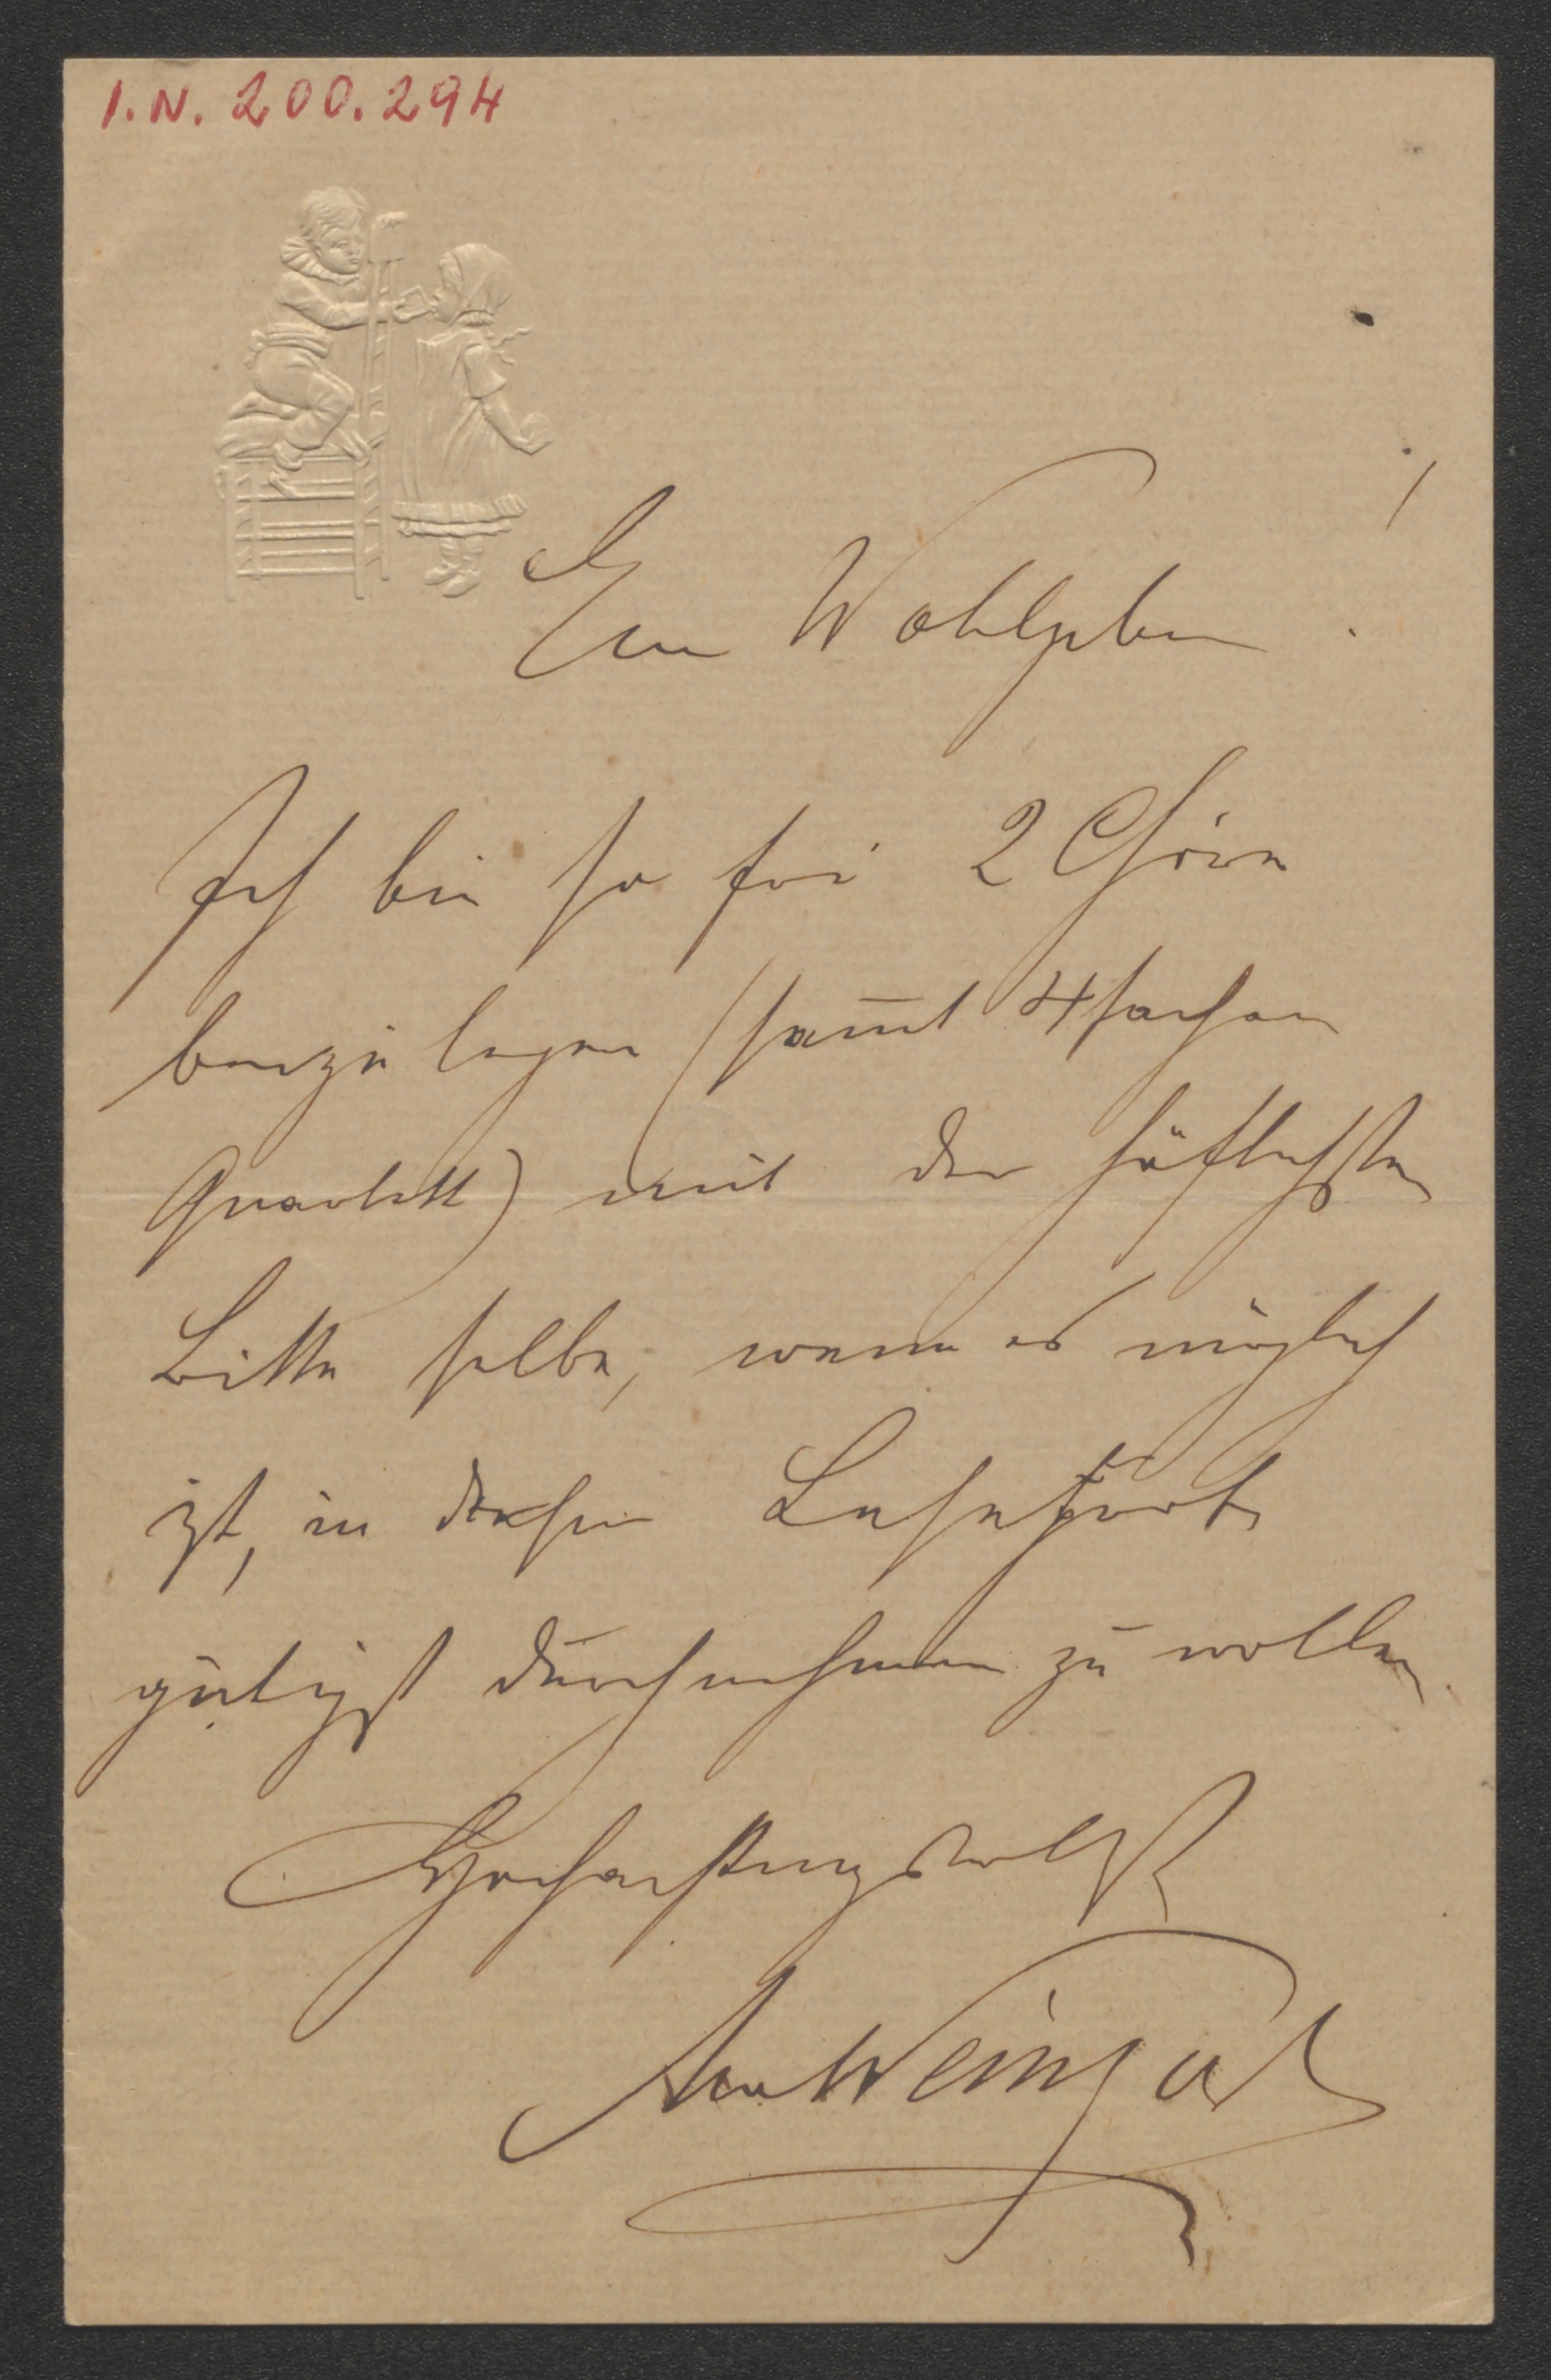 I.N. 200.294
Euer Wohlgeboren !
Ich bin so frei 2 Chöre
beizulegen (sammt 4fachem
Quartett) mit der höflichsten
Bitte selbe, wenn es möglich
ist, in diesem
gütigst durchnehmen zu wollen.
Hochachtungsvollst
Weingar